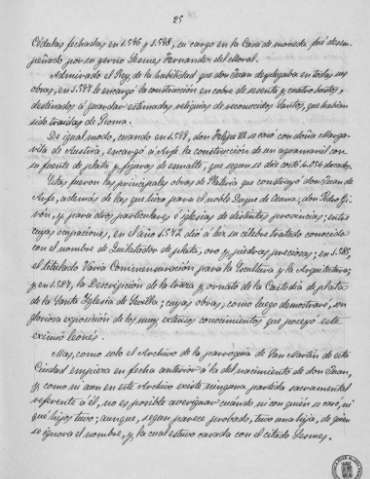 25
Cédulas fechadas en 1.596 y 1.598, su cargo en la Casa de moneda fué desem-
peñado por su yerno Lesmes Fernandez del Moral.
Admirado el Rey de la habilidad que don Juan desplegaba en todas sus
obras, en 1.597 le encargó la construccion en cobre de sesenta y cuatro bustos,
destinados á guardar estimadas reliquias de reconocidos Santos, que habian
sido traidas de Roma.
De igual modo, cuando en 1.599, don Felipe III se casó con doña Marga-
rita de Austria, encargó á Arfe la construccion de un aguamanil con
su fuente de plata y figuras de esmalte, que segun se dice costó
ducados.
Estas fueron las principales obras de Plateria que construyó don Juan de
Arfe, además de las que hizo para el noble Duque de Lerma, don Pedro Gi-
rón, y para otros particulares é iglesias de distintas provincias; entre
cuyas ocupaciones, en el año 1.572 dió á luz su célebre tratado conocido
con el nombre de Quilatador de plata, oro y piedras preciosas; en 1.585,
el titulado Varia Conmensuración para la Escultura y la Arquitectura;
y en 1.587, la Descripcion de la traza y ornato de la Custodia de plata
de la Santa Iglesia de Sevilla; cuyas obras, como luego demostraré, son
gloriosa exposición de los muy extensos conocimientos que poseyó este
eximio leonés.
Mas, como solo el Archivo de la parroquia de San Martin de esta
Ciudad empieza en fecha anterior á la del nacimiento de don Juan,
y como ni aun en este Archivo existe ninguna partida sacramental
referente á él, no es posible averiguar cuándo ni con quién se casó, ni
qué hijos tuvo; aunque, segun parece probado, tuvo una hija, de quien
se ignora el nombre, y la cual estuvo casada con el citado Lesmes.